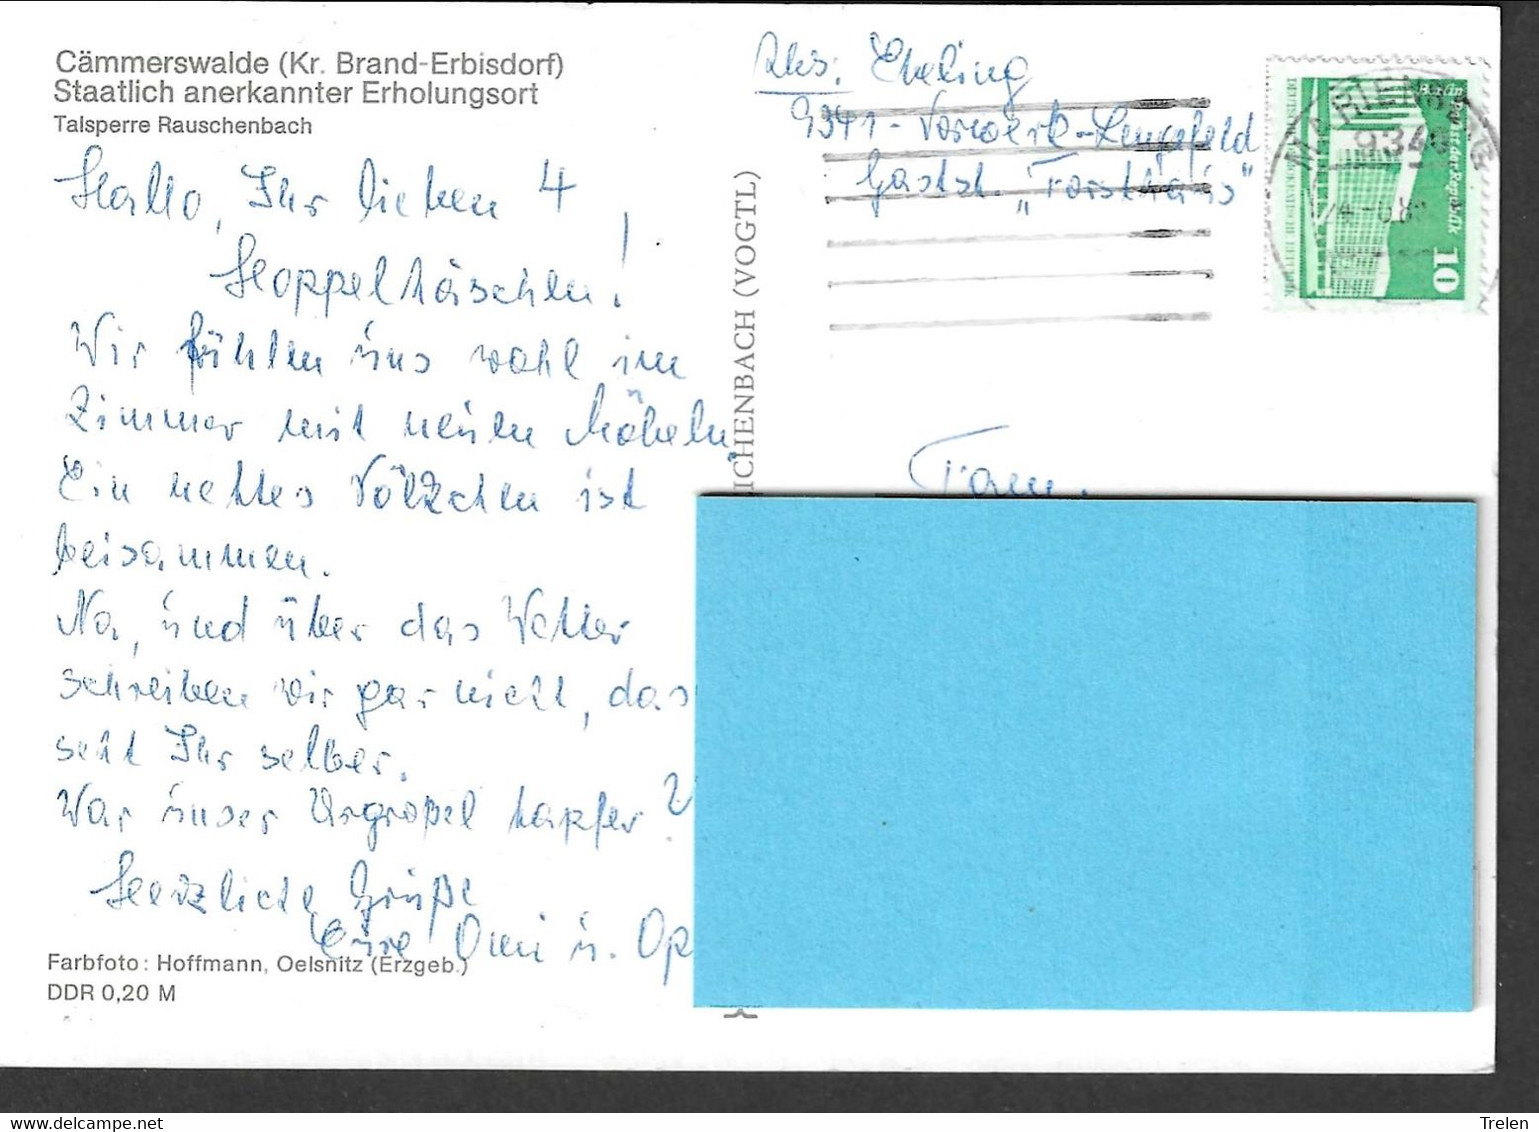 Cämmerswalde (Kr. Brand-Erbisdorf)
Staatlich anerkannter Erholungsort
Talsperre Rauschenbach
Hallo, Ihr lieben 4
Hoppelhäschen!
Wir fühlen uns wohl im
Zimmer mit neuen Möbeln.
Ein nettes Völkchen ist
beisammen.
Na, und über das Wetter
schreiben wir gar nicht, das
seht Ihr selber.
War unser Urgroßel tapfer?
Herzliche Grüße
Eure Omi u. Op
Farbfoto: Hoffmann, Oelsnitz (Erzgeb.)
DDR 0,20 M
ICHENBACH (VOGTL)
Abs: Ebeling
9341-Vorwerk-Lengefeld
Gastst. „Forsthaus"
MARIENBERG
934
Berlin
Palast der Republik
10
Fam.
Trelen
delcampe.net